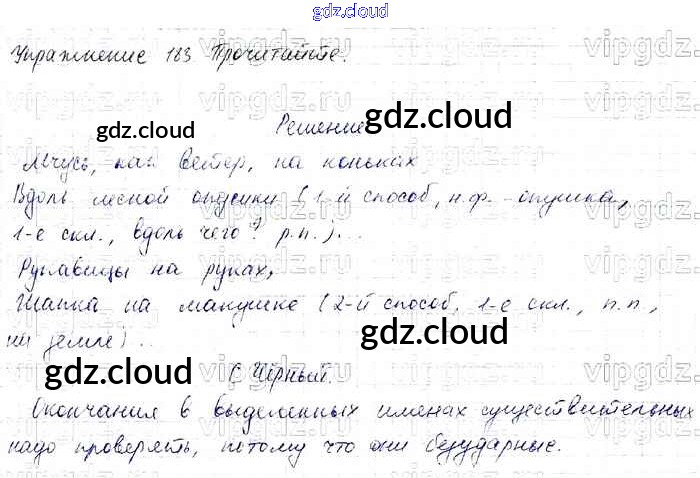 gdz.cloud
Упражнение 183 Прочитайте.
Решение
Мчусь, как ветер, на коньках
Вдоль лесной опушки (1-й способ, н.ф. - опушка,
1-е скл., вдоль чего? р.п.)...
Рукавицы на руках,
Шапка на макушке (2-й способ, 1-е скл., п.п.,
на земле)...
С. Чёрный.
Окончания в выделенных именах существительных
надо проверять, потому что они безударные.
gdz.cloud
gdz.cloud
gdz.cloud
gdz.cloud
vipgdz.
vipgdz